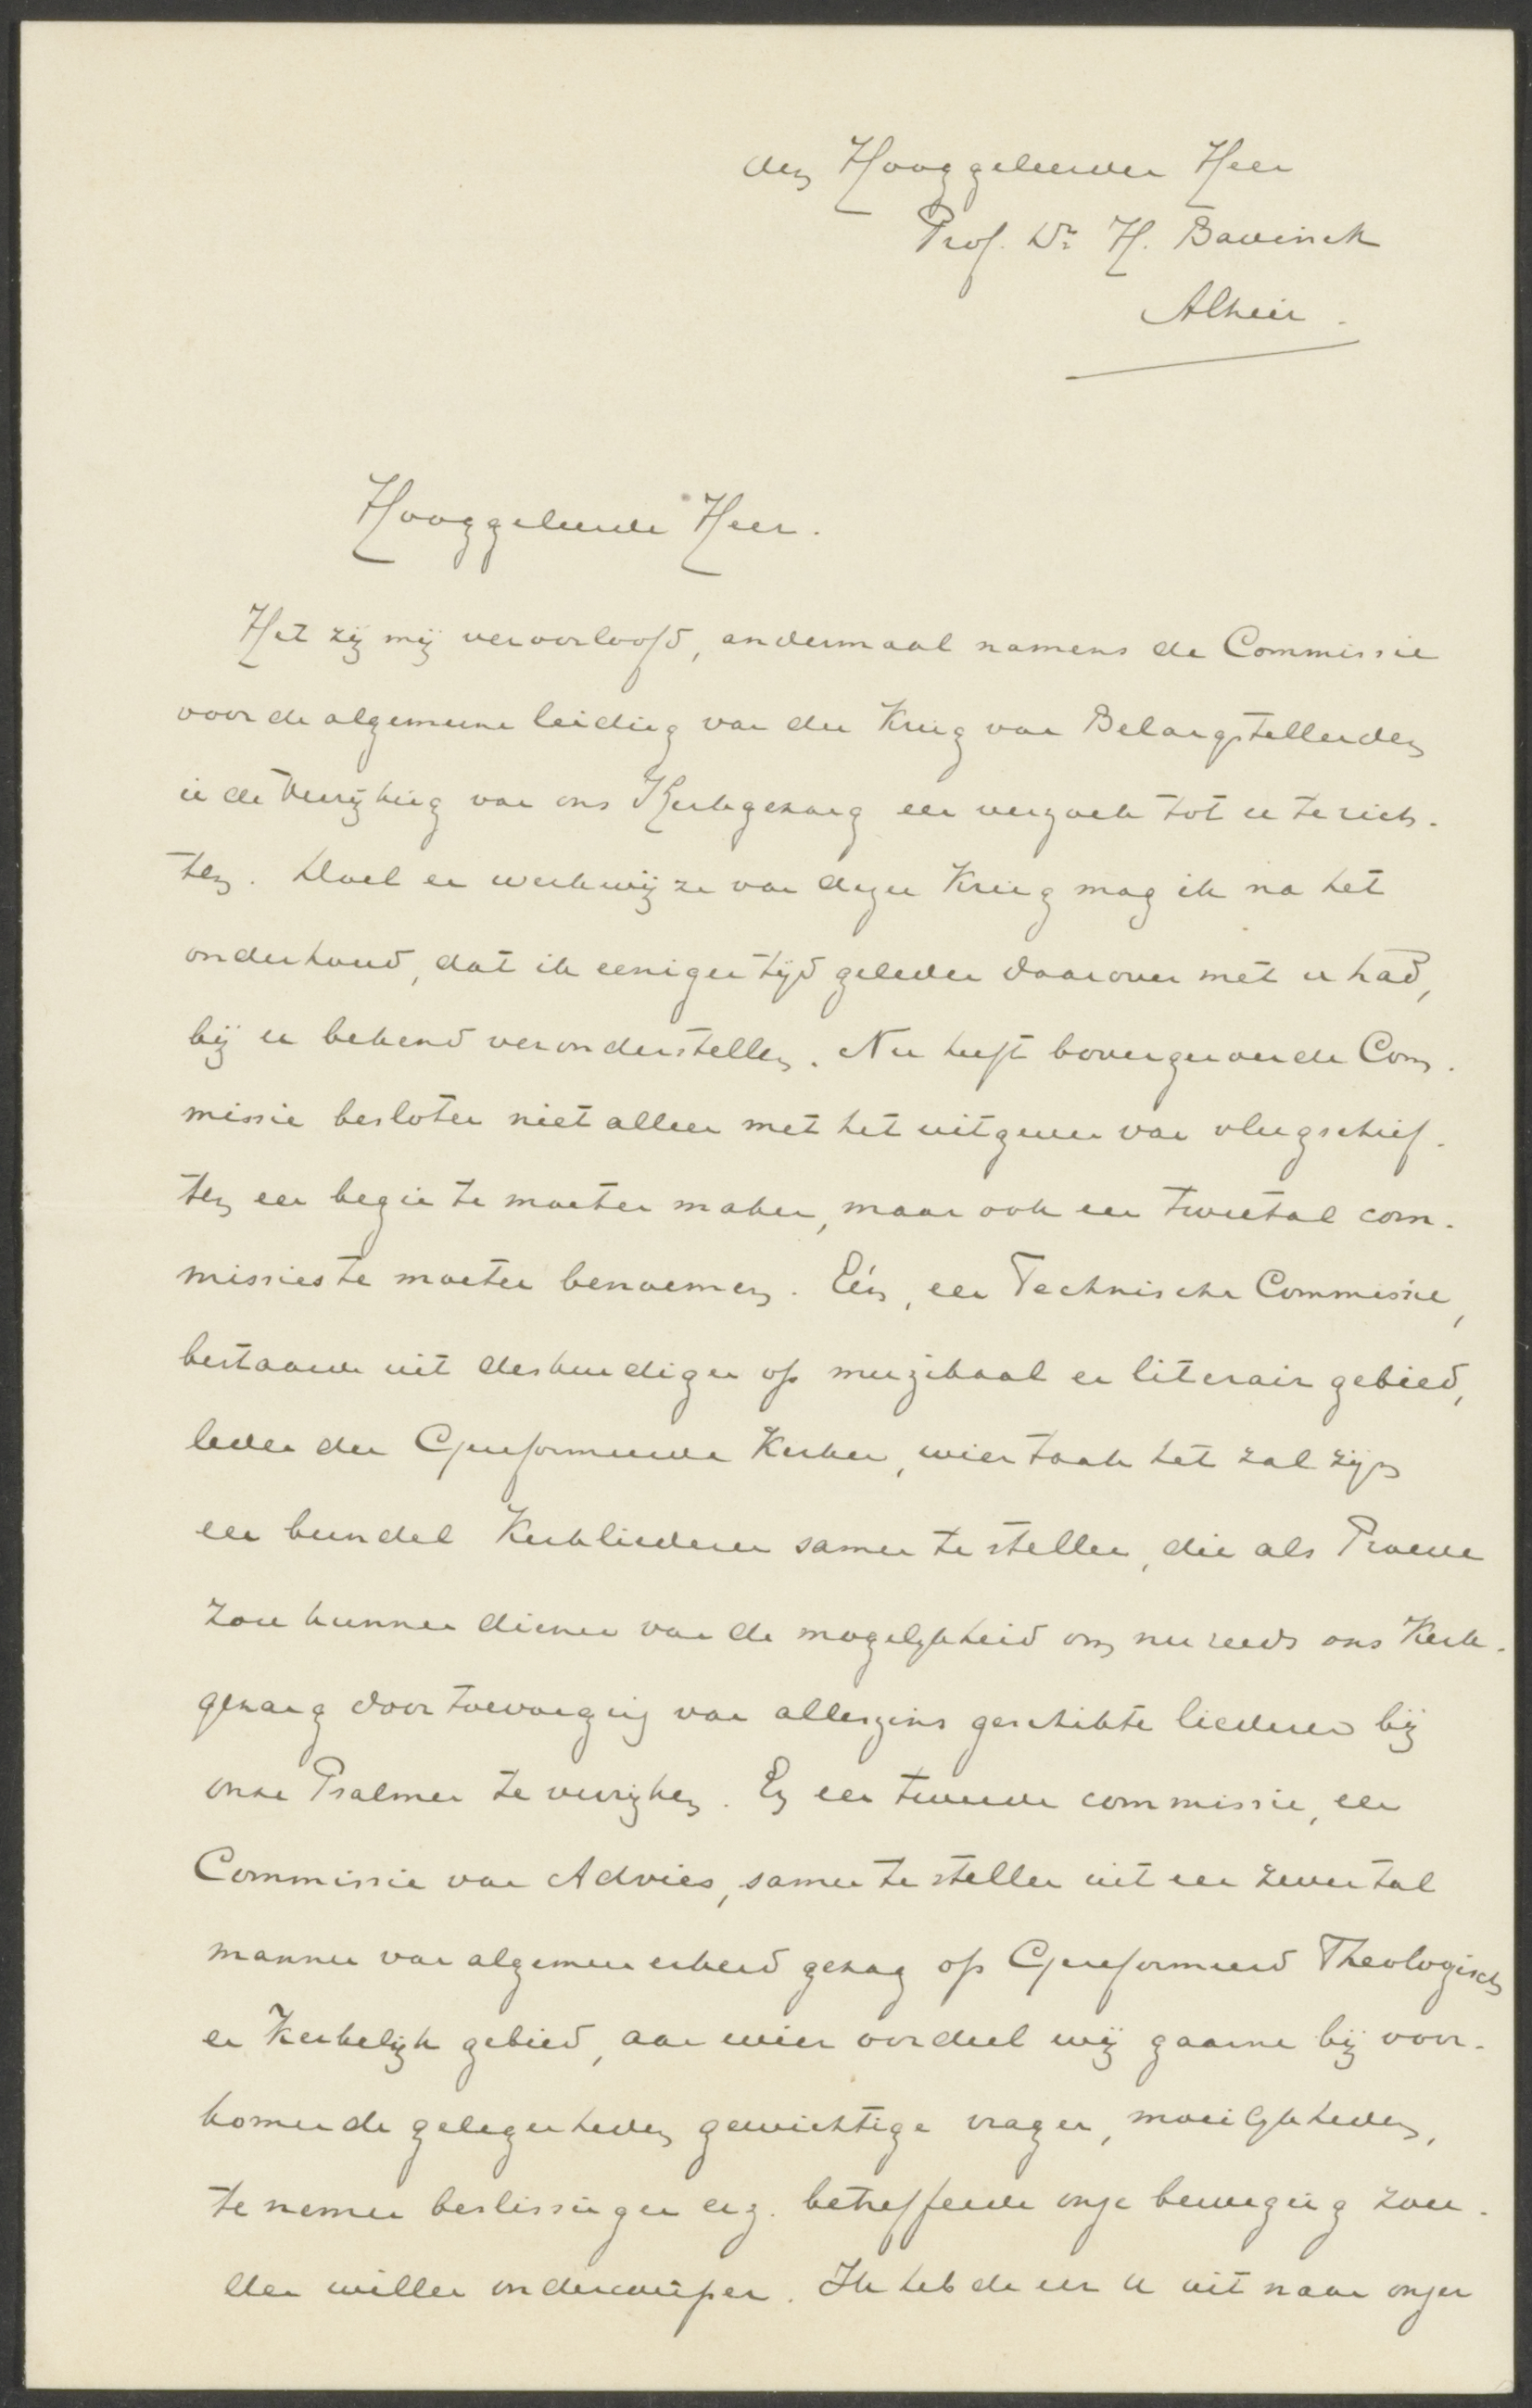 den Hooggeleerden Heer
Prof. Dr. H. Bavinck
Alhier.
Hooggeleerde Heer.
Het zij mij veroorloofd, andermaal namens de Commissie
voor de algemeene leiding van den Kring van Belangstellenden
in de Verrijking van ons Kerkgezang een verzoek tot u te rich-
ten. Doel en werkwijze van dezen Kring mag ik na het
onderhoud, dat ik eenigen tijd geleden daarover met u had,
bij u bekend veronderstellen. Nu heeft bovengenoemde Com-
missie besloten niet alleen met het uitgeven van vlugschrif-
ten een begin te moeten maken, maar ook een tweetal com-
missies te moeten benoemen. Eén, een Technische Commissie,
bestaande uit deskundigen op muzikaal en literair gebied,
leden der Gereformeerde Kerken, wier taak het zal zijn
een bundel Kerkliederen samen te stellen, die als Proeve
zou kunnen dienen van de mogelijkheid om nu reeds ons Kerk-
gezang door toevoeging van alleszins geschikte liederen bij
onze Psalmen te verrijken. En een tweede commissie, een
Commissie van Advies, samen te stellen uit een zevental
mannen van algemeen erkend gezag op Gereformeerd Theologisch
en Kerkelijk gebied, aan wier oordeel wij gaarne bij voor-
komende gelegenheden gewichtige vragen, moeilijkheden,
te nemen beslissingen enz. betreffende onze beweging zou-
den willen onderwerpen. Ik heb de eer u uit naam onzer